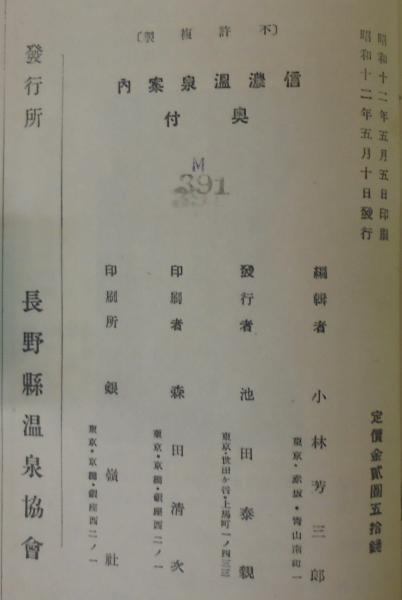 昭和十二年五月五日印刷
昭和十二年五月十日發行
定價金貳圓五拾錢
〔不許複製〕
信濃溫泉案內
奧付
M
391
編輯者 小林芳三郎
東京・赤坂・青山南町一
發行者 池田泰親
東京・世田ヶ谷・上馬町一ノ四三三
印刷者 森田清次
東京・京橋・銀座西二ノ一
印刷所 銀嶺社
東京・京橋・銀座西二ノ一
發行所 長野縣溫泉協會